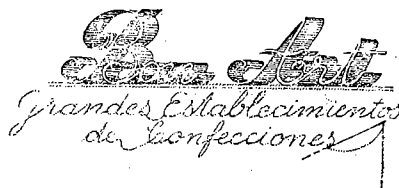 Art
Grandes Establecimientos
de Confecciones